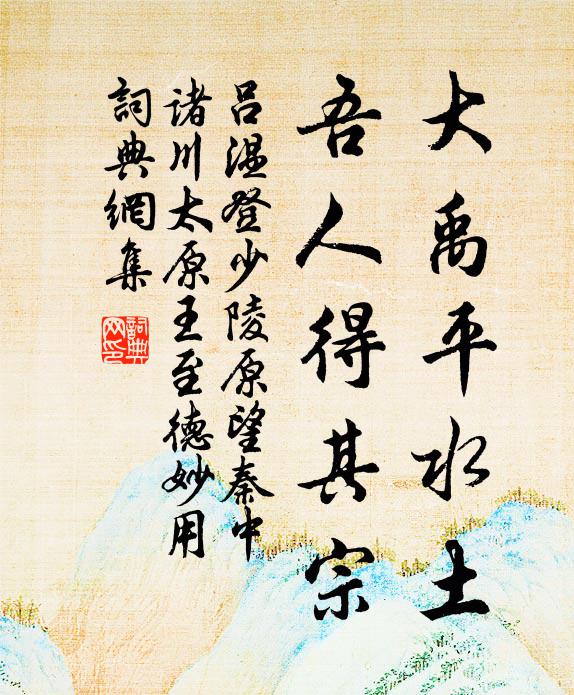 大禹平水土
吾人得其宗
吕温登少陵原望秦中
诸川太原王至德妙用
詞典網集
詞典網印